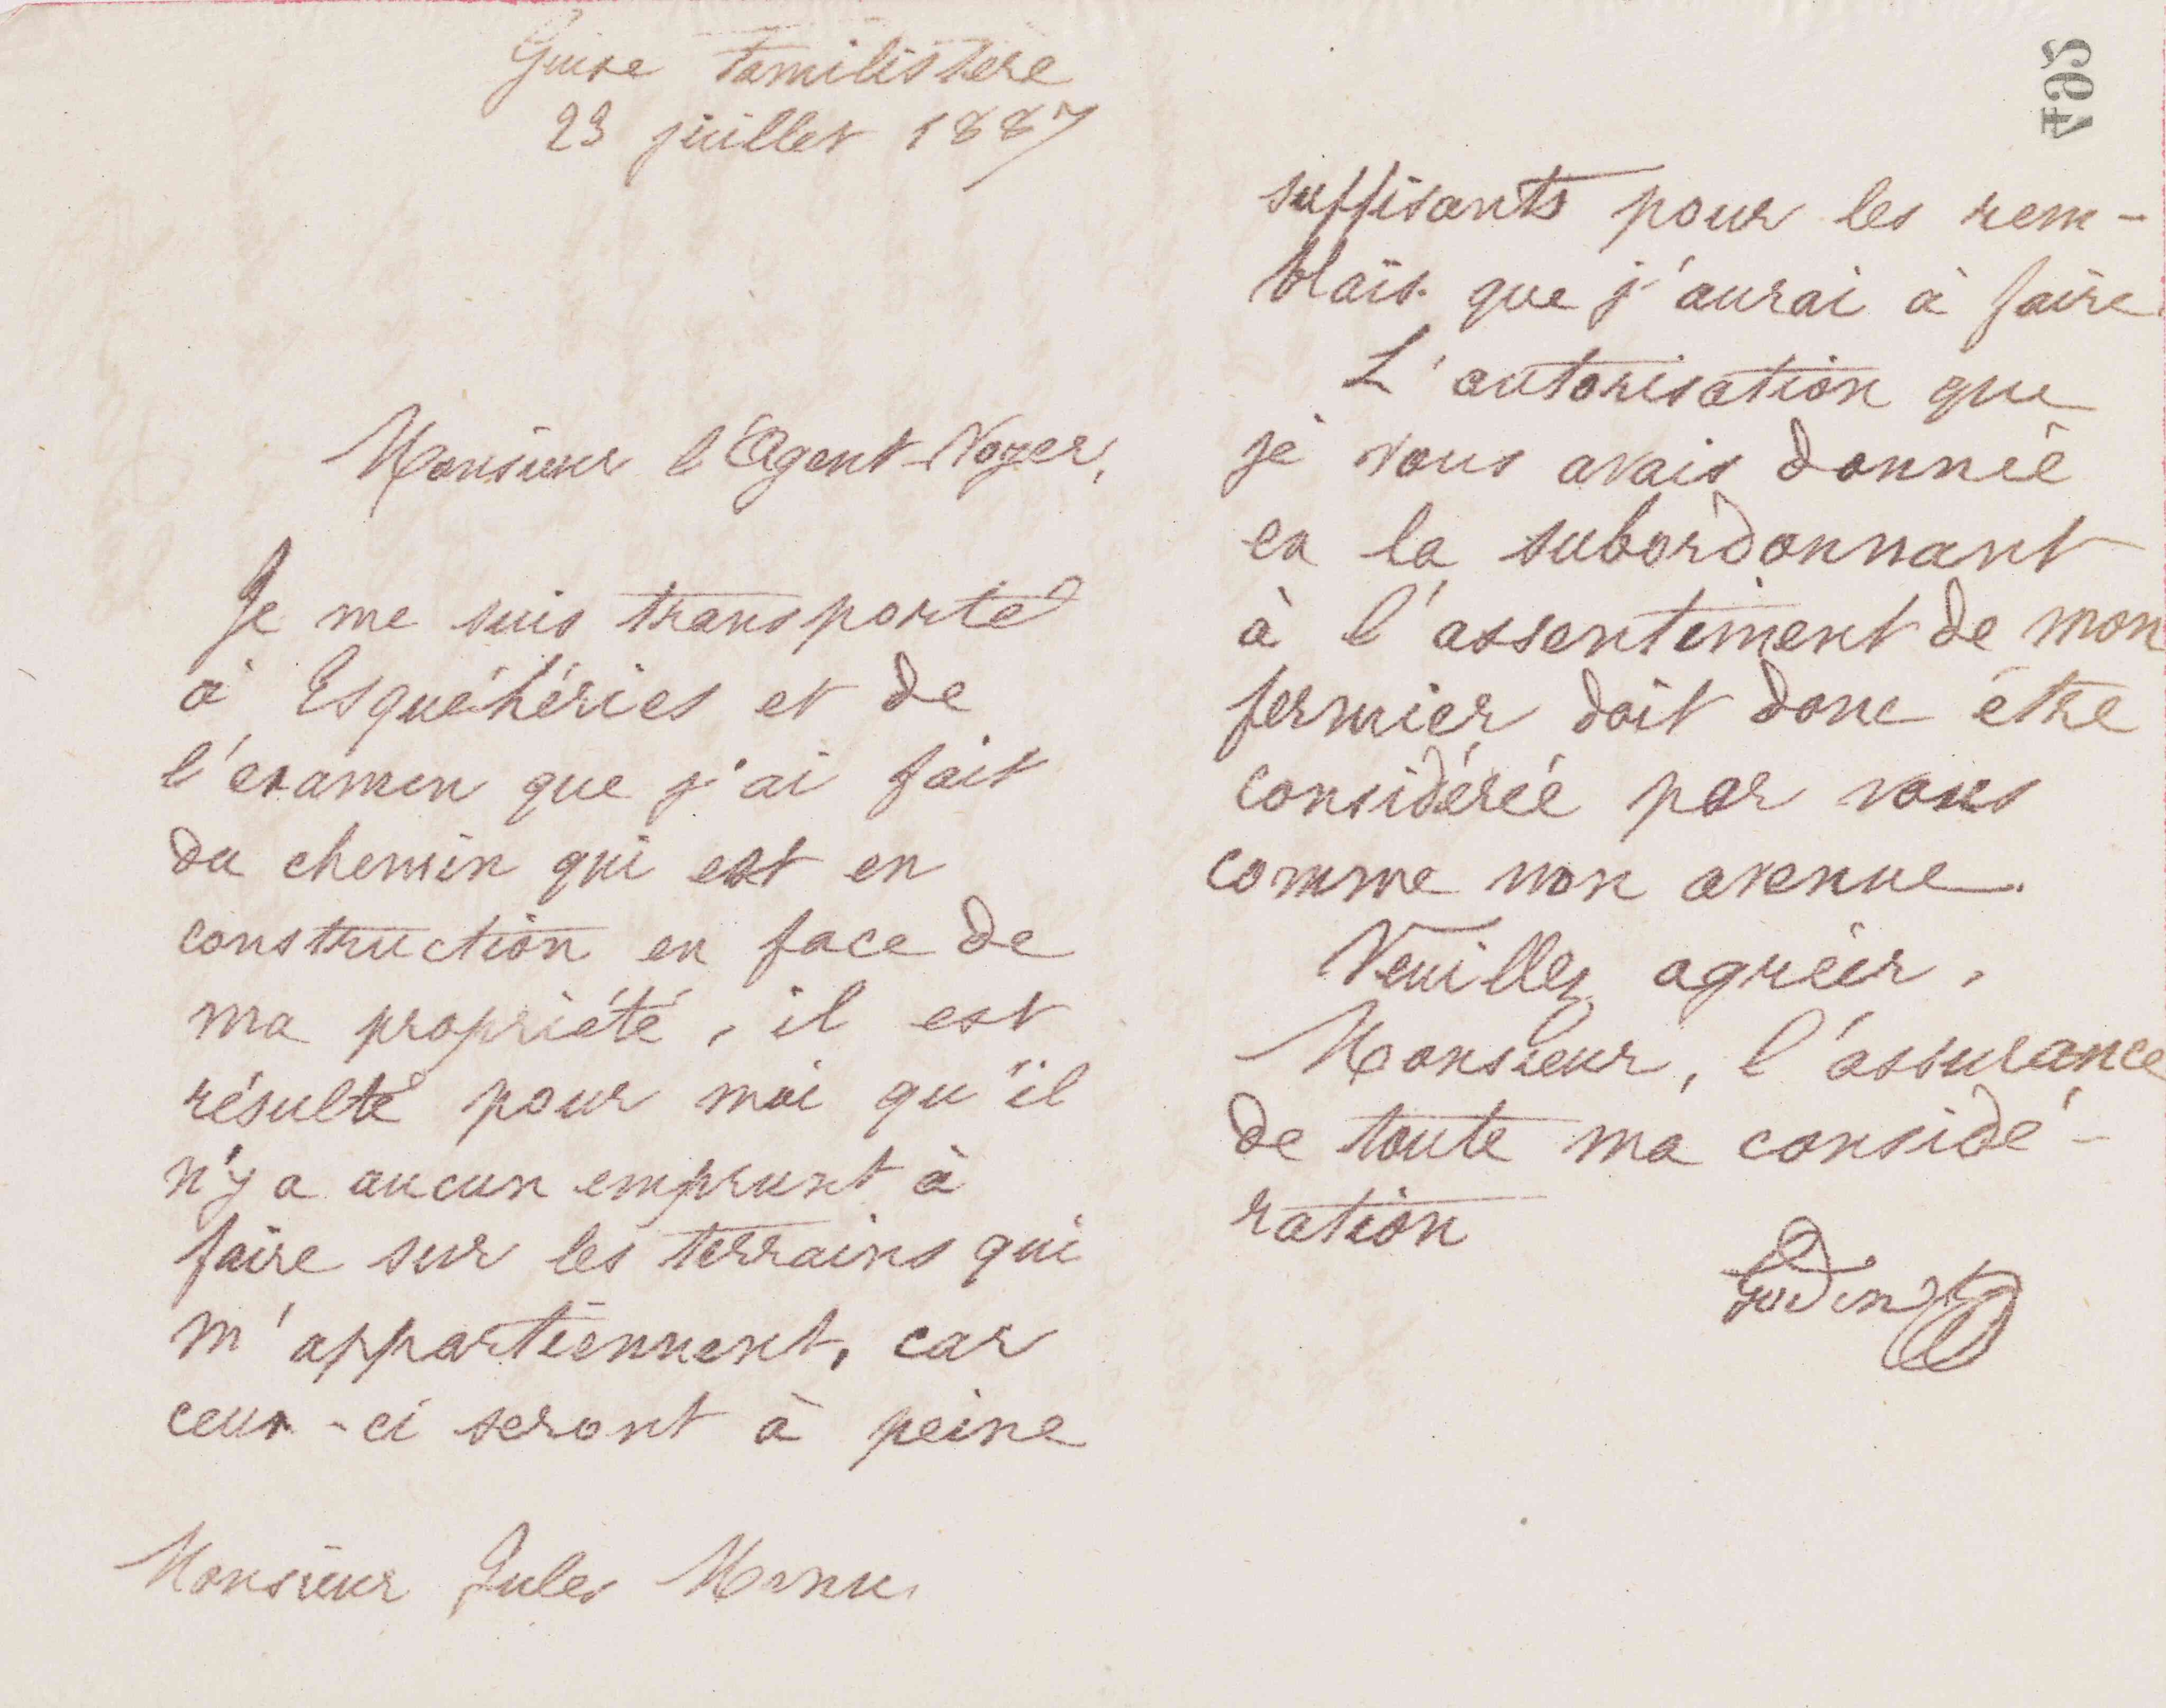 Guise Familistère
23 juillet 1887
Monsieur l'Agent-Voyer,
Je me suis transporté
à Esquéhéries et de
l'examen que j'ai fait
du chemin qui est en
construction en face de
ma propriété, il est
résulté pour moi qu'il
n'y a aucun emprunt à
faire sur les terrains qui
m'appartiennent, car
ceux-ci seront à peine
Monsieur Jules Menu
495
suffisants pour les rem-
blais que j'aurai à faire.
L'autorisation que
je vous avais donnée
en la subordonnant
à l'assentiment de mon
fermier doit donc être
considérée par vous
comme non avenue.
Veuillez agréer,
Monsieur, l'assurance
de toute ma considé-
ration
Godin